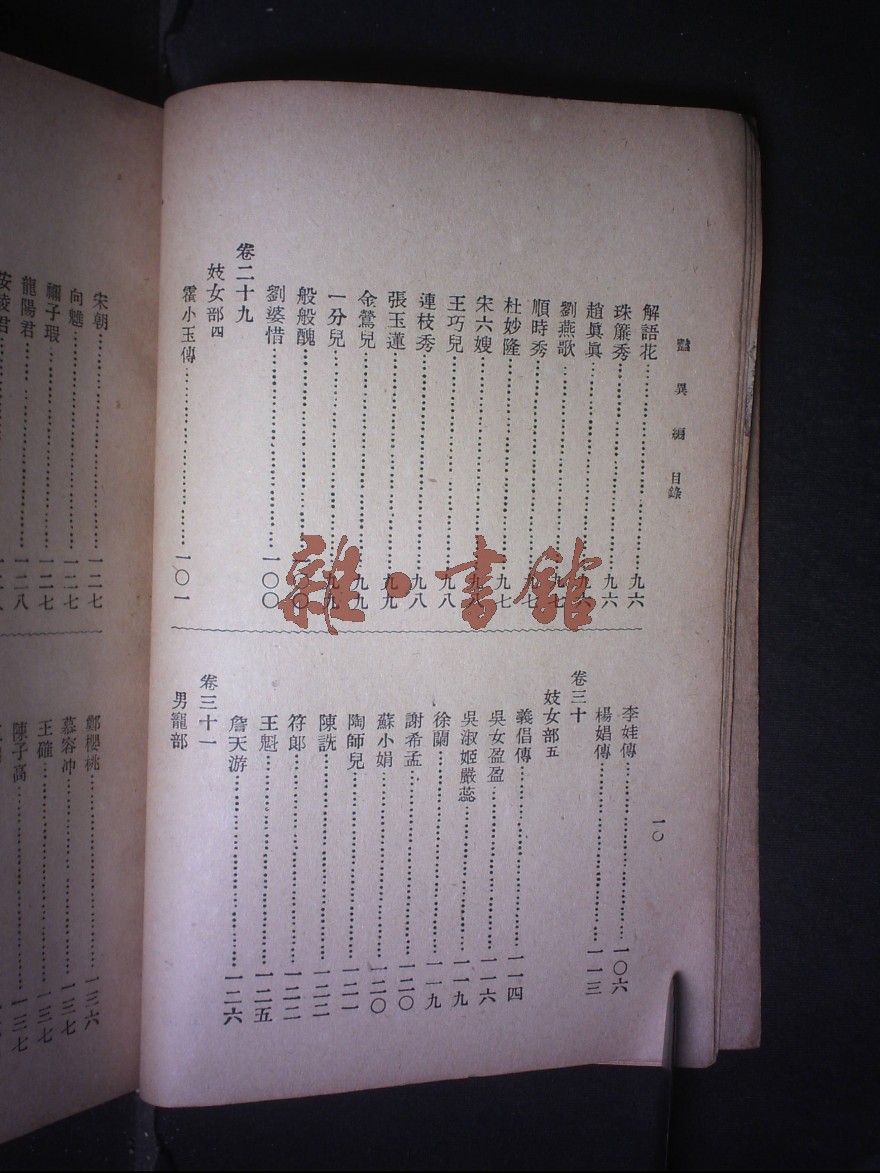 豔異編 目錄
一〇
解語花 九六
珠簾秀 九六
趙眞眞 九六
劉燕歌 九七
順時秀 九七
杜妙隆 九七
宋六嫂 九八
王巧兒 九八
連枝秀 九八
張玉蓮 九九
金鶯兒 九九
一分兒 九九
般般醜 一〇〇
劉婆惜 一〇〇
卷二十九
妓女部四
霍小玉傳 一〇一
李娃傳 一〇六
楊娼傳 一一三
卷三十
妓女部五
義倡傳 一一四
吳女盈盈 一一六
吳淑姬嚴蕊 一一九
徐蘭 一一九
謝希孟 一二〇
蘇小娟 一二〇
陶師兒 一二一
陳詵 一二二
符郎 一二二
王魁 一二五
詹天游 一二六
卷三十一
男寵部
宋朝 一二七
向魋 一二七
禰子瑕 一二七
龍陽君 一二八
安陵君 一二八
鄭櫻桃 一三六
慕容沖 一三七
王確 一三七
陳子高 一三七
雜·書館